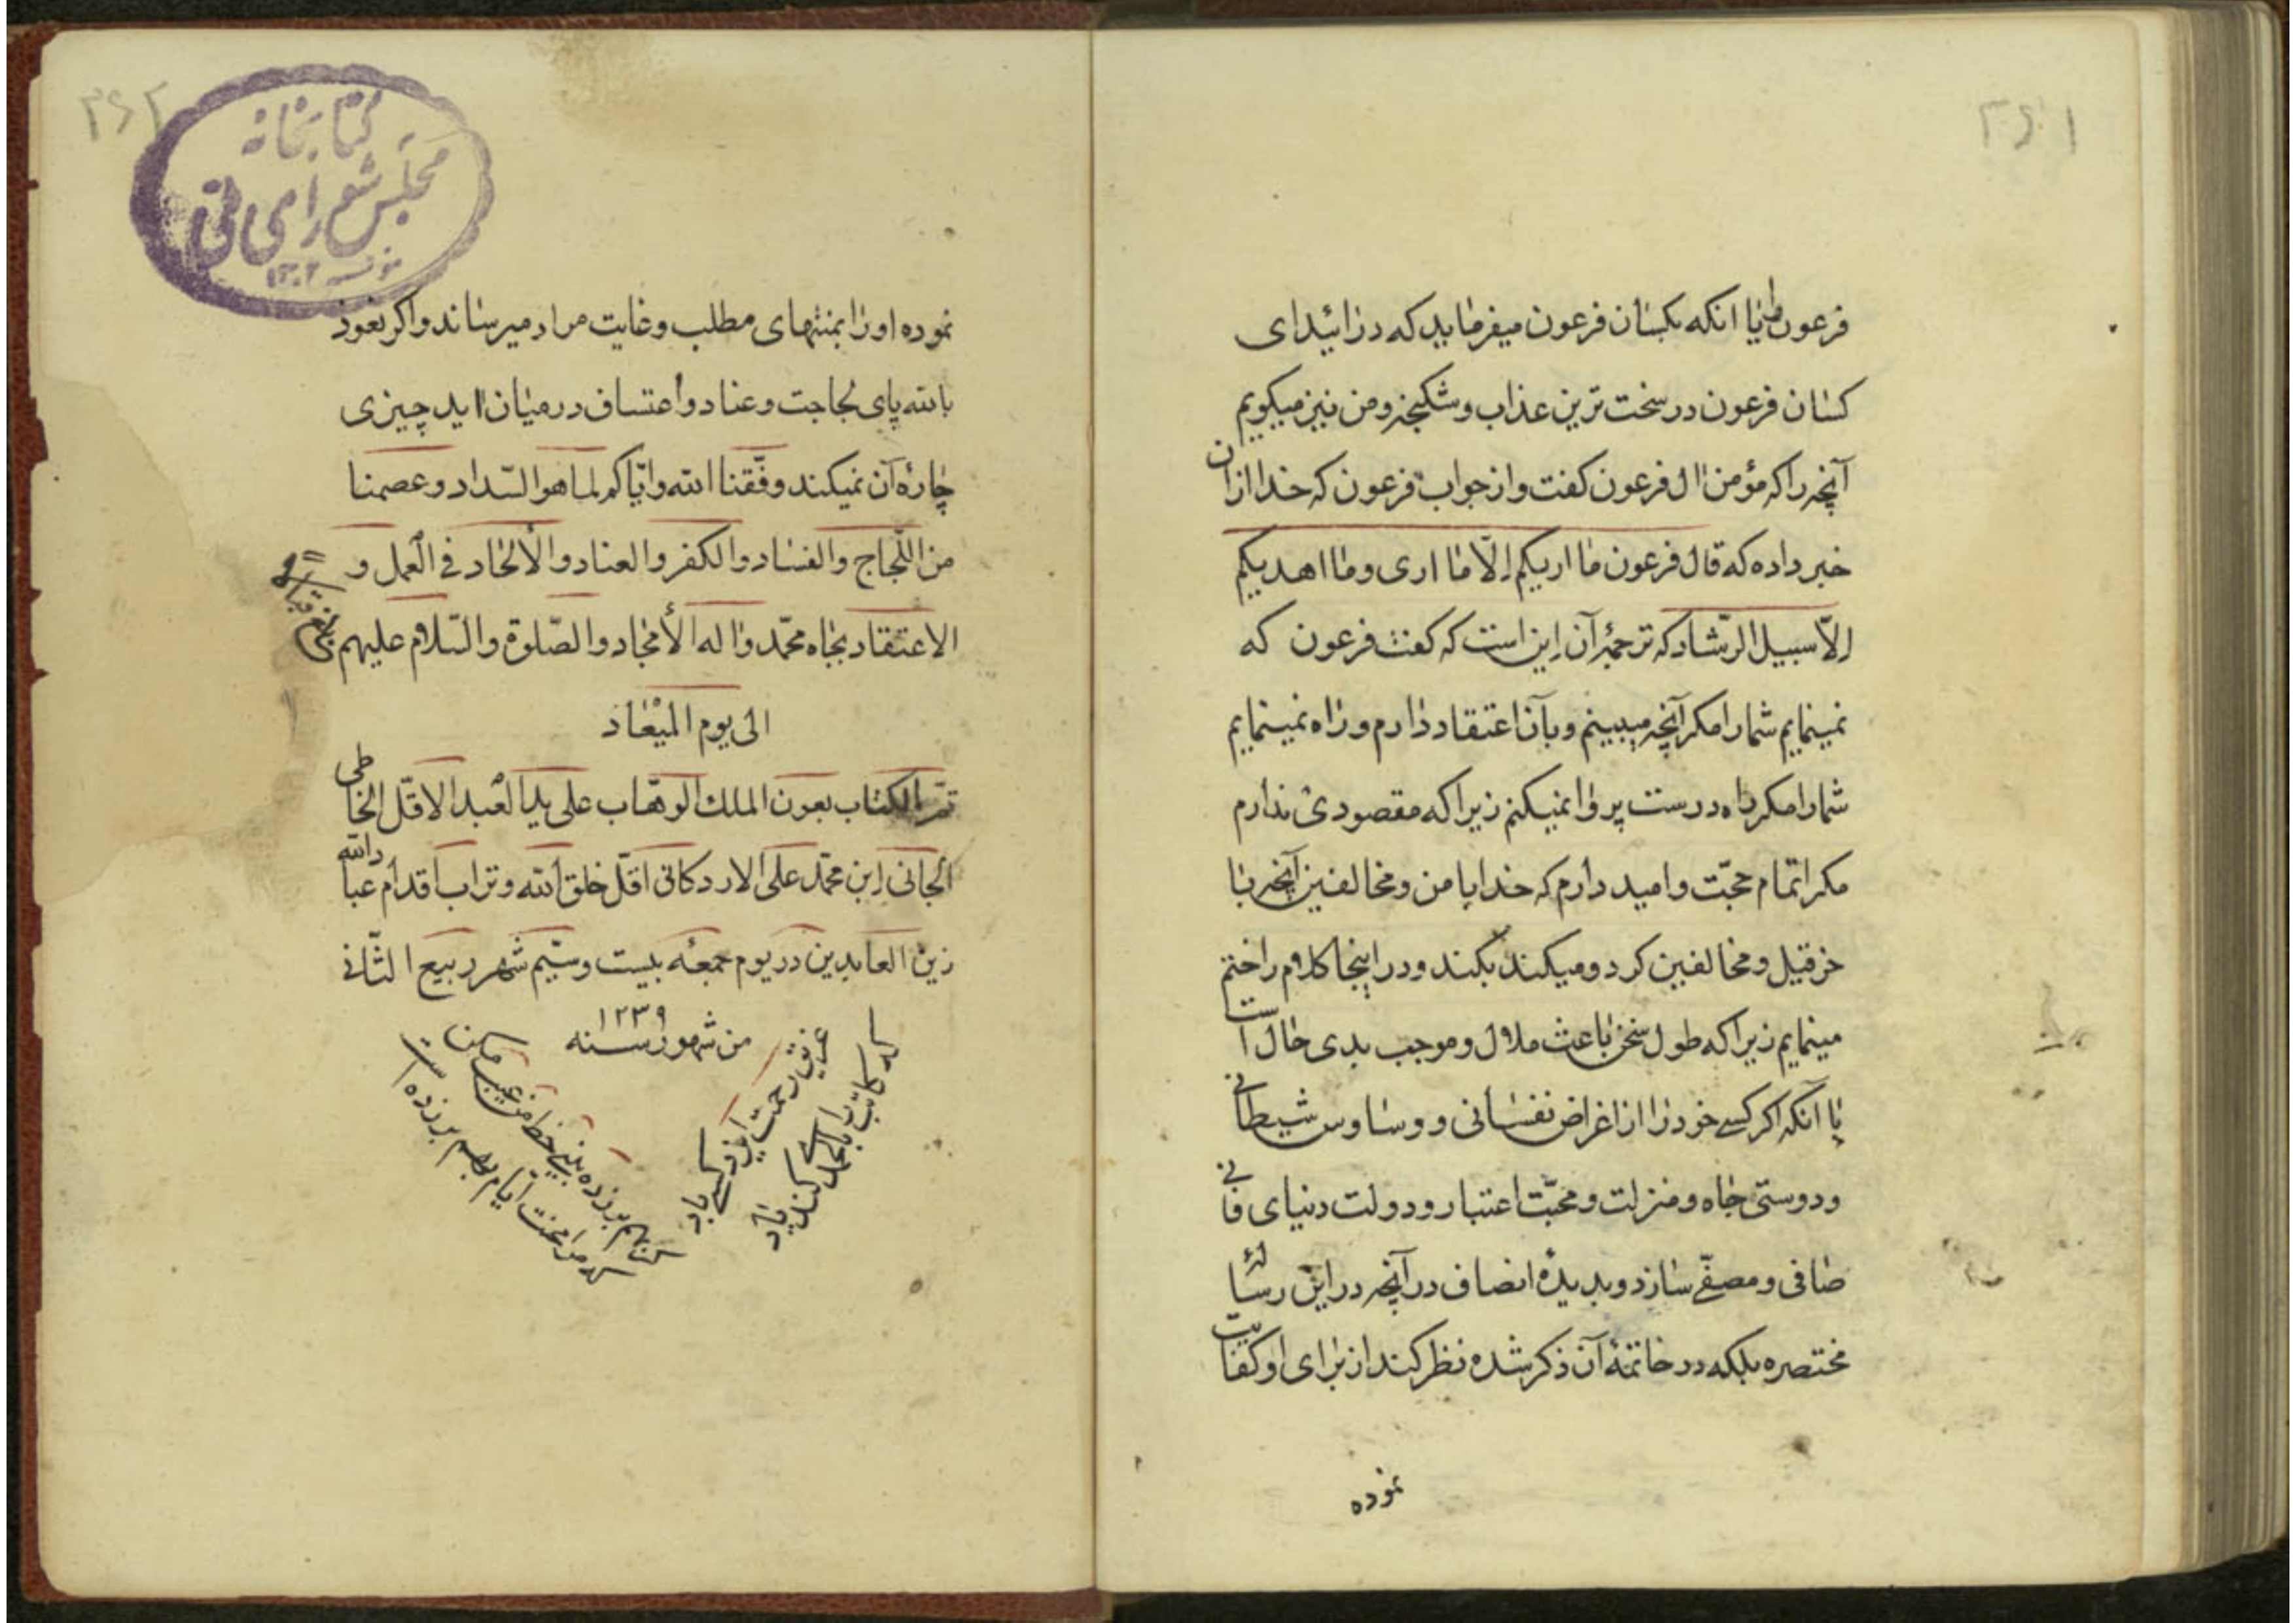 ۳۶۱
فرعون ملانا انکه بکسان فرعون میفرماید که درائید ای
کسان فرعون در سخت ترین عذاب و شکنجه و من نیز میکویم
آنچه را که مؤمن ال فرعون کفت و از جواب فرعون که خدا ازان
خبر داده که قال فرعون ما اریکم الّا ما اری و ما اهدیکم
الّا سبیل الرّشاد که ترجمۀ آن این است که کفت فرعون که
نمینمایم شما را مکر آنچه میبینم و بآن اعتقاد دارم و راه نمینمایم
شما را مکر راه درست پروا نمیکنم زیرا که مقصودی ندارم
مکر اتمام حجّت و امید دارم که خدا با من و مخالفین آنچه با
خرقیل و مخالفین کرد و میکند بکند و در اینجا کلام را ختم
مینمایم زیرا که طول سخن باعث ملال و موجب بدی حال است
با آنکه اکر کسی خود را از اغراض نفسانی و وساوس شیطانی
و دوستی جاه و منزلت و محبّت اعتبار و دولت دنیای فانی
صافی و مصفّی سازد و بدیدۀ انصاف در آنچه در این رسالۀ
مختصره بلکه در خاتمۀ آن ذکر شده نظر کند از برای او کفایت
نموده
۳۶۲
کتابخانه
مجلس شورای ملی
۱۳۰۲
نموده او را بمنتهای مطلب و غایت مراد میرساند و اکر نعوذ
بالله پای لجاجت و عناد و اعتساف در میان اید چیزی
چارۀ آن نمیکند وفّقنا الله و ایّاکم لما هو السّداد و عصمنا
من اللّجاج والفساد والکفر والعناد والألحاد فی العمل و
الاعتقاد بجاه محمّد واله الأمجاد والصّلوة والسّلام علیهم
الی یوم المیعاد
تمّ الکتاب بعون الملک الوهّاب علی ید العبد الاقلّ الخاطی
الجانی ابن محمّد علی الاردکانی اقلّ خلق الله و تراب اقدام عباد الله
زین العابدین در یوم جمعه بیست و سیّم شهر ربیع الثّانی
من شهور سنه ۱۲۳۹
غریق رحمت ایزد کسی باد
که کاتب را بالحمدی کند یاد
کر بهم بر زده بینی خط من عیب مکن
که مرا محنت ایام بهم بر زده است